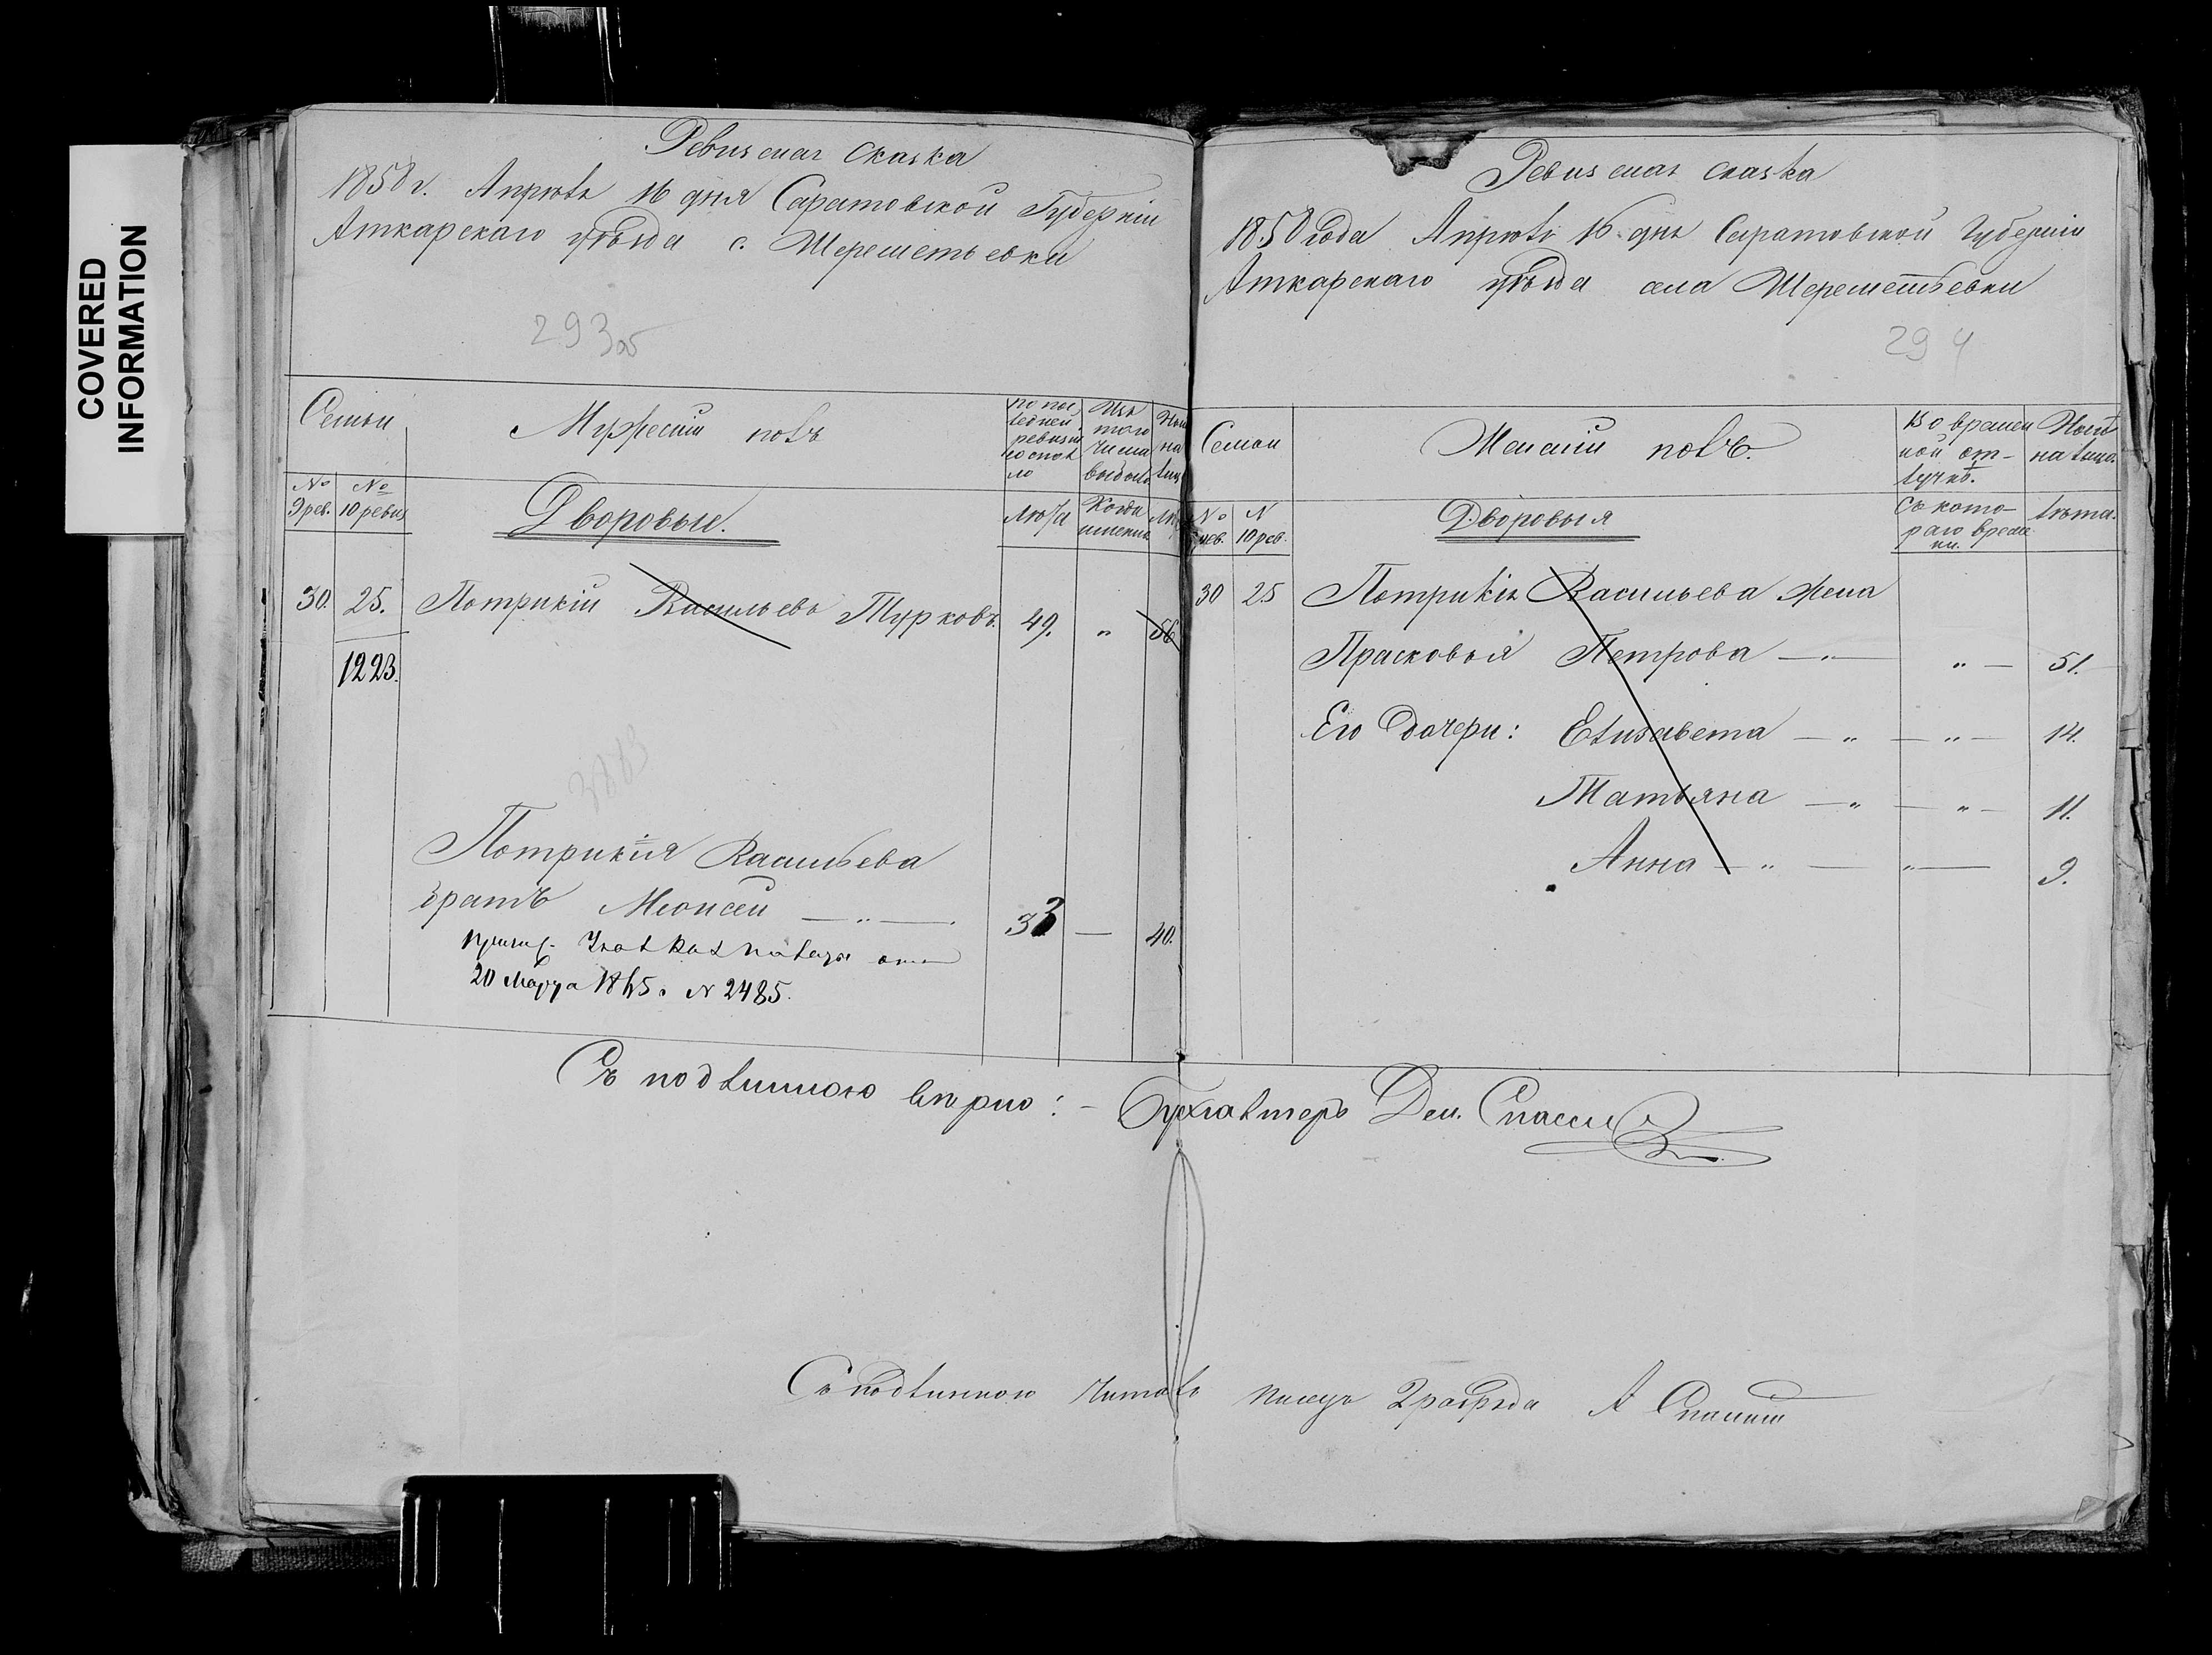 COVERED
INFORMATION
Ревизская сказка
1858 г. Апрѣля 16 дня Саратовской Губерніи
Аткарскаго уѣзда с. Шереметьевки
293об
Семьи
Мужескій полъ
по пос
лѣдней
ревизіи
состоя
ло
Изъ
того
числа
выбыло
Нынѣ
на
лиц
№
9 рев.
№
10 ревиз
Дворовые.
Лѣта
Когда
именно
Лѣ
30. 25. Потрикій Васильевъ Турковъ. 49. " 56
1223.
3883
Потрикія Васильева
братъ Моисей — " — 33 — 40.
Казн палаты от
20 Марта 1865 № 2485.
Ревизская сказка
1858 года Апрѣля 16 дня Саратовской Губерніи
Аткарскаго уѣзда села Шереметьевки
294
Семьи
Женскій полъ.
Во времен
ной от-
лучкѣ.
Нынѣ
на лицо.
№
рев.
N
10 рев.
Дворовыя
Съ кото-
раго време
ни.
лѣта.
30 25 Потрикія Васильева жена
Прасковья Петрова — " — " — 51.
Его дочери: Елизавета — " — " — 14.
Татьяна — " — " — 11.
Анна — " — " — 9.
Съ подлиннымъ вѣрно: – Бухгалтеръ Дем. Спасск
Съ подлинною читалъ писецъ 2 разряда А